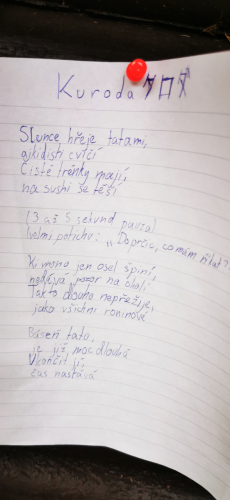 Kuroda クロダ
Slunce hřeje tatami,
ajkidisti cvičí
Čisté trénky mají,
na sushi se těší
(3 až 5 sekund pauza)
Velmi potichu: „Doprčic, co mám říkat?
Kimono jen osel špiní,
nedává pozor na okolí
Takto dlouho nepřežije,
jako všichni roninové
Báseň tato,
je již moc dlouhá
Ukončit ji,
čas nastává